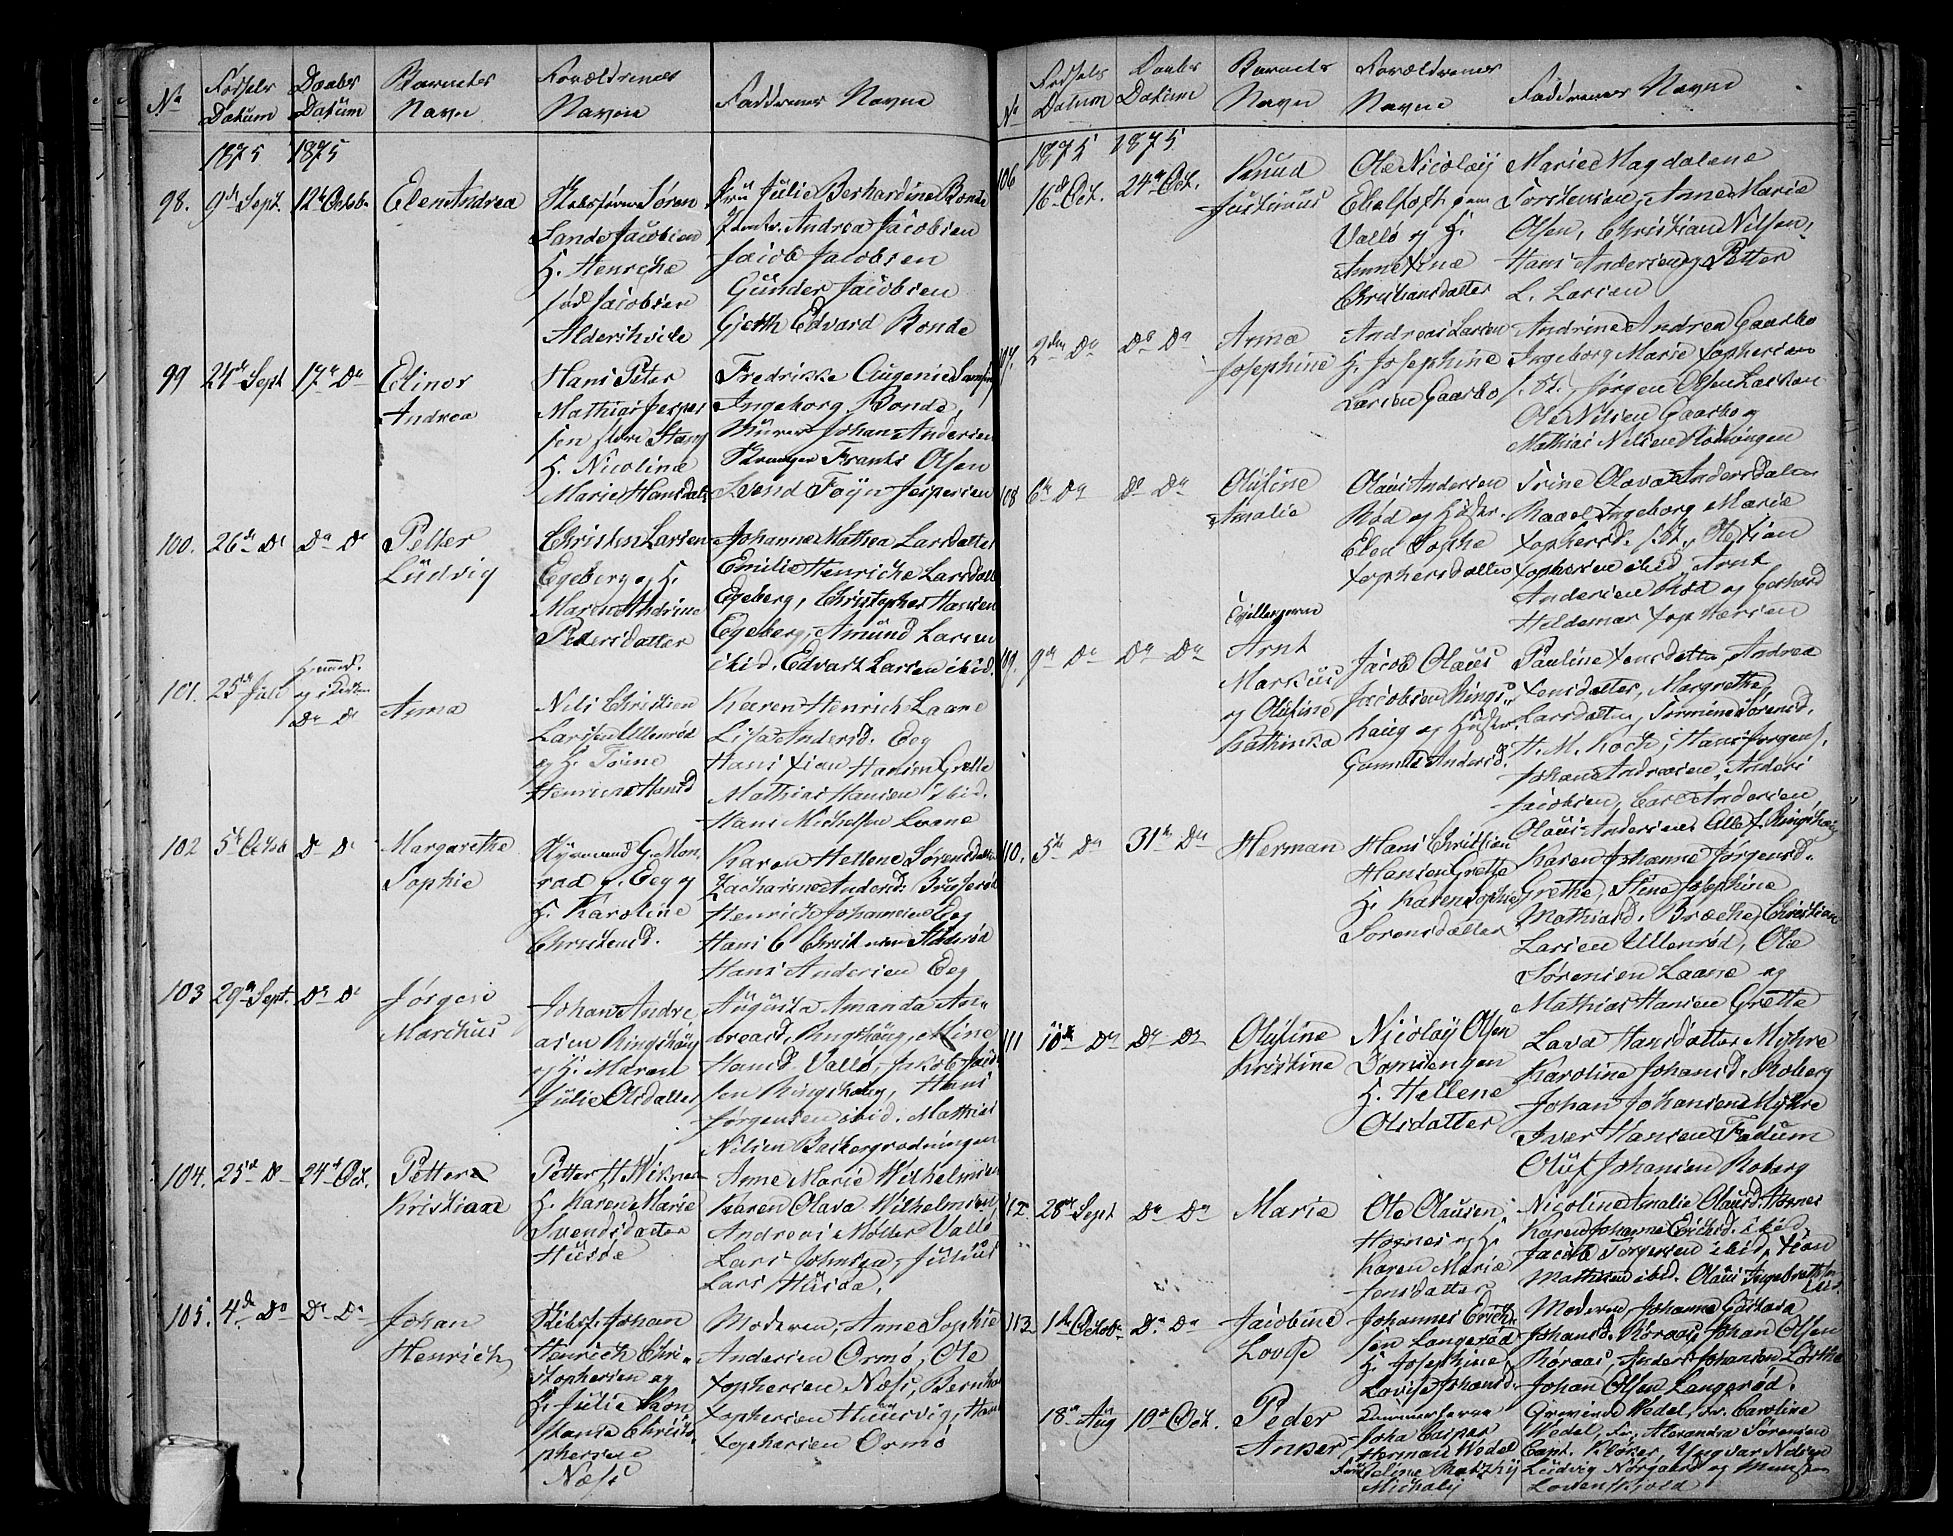 No
Fødsels
Datum
Daabs
Datum
Barnets
Navn
Forældrenes
Navne
Faddernes Navne
1875 1875
98. 9de Sept. 12te Octob.
Elen Andrea
Søren
Sande Jacobsen
H. Henriche
fød Jacobsen
Fru Julie Berhardine Bonde
Andrea Jacobsen
Jacob Jacobsen
Gunder Jacobsen
Gjerth Edvard Bonde
99 24de Sept 17de Do
Elinor
Andrea
Hans Peter
Mathias Jesper
sen store Stang
H. Nicoline
Marie Hansdat.
Fredrikke Augenie
Ingeborg Bonde,
Murer Johan Andersen
Frants Olsen
Svend Foyn Jespersen
100. 26de Do Do Do
Petter
Ludvig
Christen Larsen
Egeberg og H.
Maren Andrine
Pedersdatter
Johanne Mathea Larsdatter
Emilie Henriche Larsdatt
Egeberg, Christopher Hansen
Egeberg, Amund Larsen
ibid. Edvart Larsen ibid.
101. 25de Juli
Do Do
Anna
Nils Christian
Larsen Ullenrød
og H. Torine
Henriche Hansd
Karen Henrich Laane
Lisa Andersd. Eeg
Hans Xtian Hansen Grette
Mathias Hansen ibid.
Hans Michelsen Laane
102 5te Octob Do Do
Margarethe
Sophie
Eeg og
H. Karoline
Christensd.
Karen Hellene Sørensdatter
Zacharine Andersd.
Henrich Johannesen Eeg
Hans C Christensen
Hans Andersen Eeg
103 29de Sept. Do Do
Jørgen
Marchus
Johan Andre
asen Ringshaug
og H. Maren
Julie Olsdatter
Augusta Amanda An-
dreasd. Ringshaug, Mine
Hansd. Vallø, Jakob Jacob
sen Ringshaug, Hans
Jørgensen ibid. Mathias
Nilsen
104. 25de Do 24de Oct.
Petter
Kristian
Petter H.
H. Karen Marie
Svendsdatter
Husøe
Anne Marie Wilhelmsen
Karen Olava Wilhelmsen
Andreas Møller Vallø
Lars Johnsen, Julius
Lars Husøe.
105. 4de Do Do Do
Johan
Henrich
Skibsf. Johan
Henrich Chri-
stophersen og
H. Julie
Christo-
phersen
Næss
Moderen, Anne Sophie
Andersen Ormø, Ole
Xophersen Næss, Bernh.
Xophersen Husvig, Hans
Xophersen Ormø
No
Fødsels
Datum
Daabs
Datum
Barnets
Navn
Forældrenes
Navne
Faddernes Navne
1875 1875
106 16de Oct. 24de Oct.
Knud
Justinius
Ole Nicolay
Vallø og H.
Anne Xine
Christiansdatter
Marie Magdalene
Torstensen, Anne Marie
Olsen, Christian Nilsen,
Hans Andersen og Petter
L. Larsen
107. 2den Do Do Do
Anna
Josephine
Andreas Larsen
H. Josephine
Larsen Gaarbo
Andrine Andrea Gaarbo
Ingeborg Marie Xophersen
Jørgen Olsen
Ole Nilsen Gaarbo og
Mathias Nilsen
108 6te Do Do Do
Olufine
Amalie
Olaus Andersen
Rød og Hustr.
Elen Sophie
Xophersdatter
Trine Olava Andersdatter
Ingeborg Marie
Xophersd. Ole Xtian
Xophersen ibid, Arnt
Andersen Rød og Gerhard
Heldemar Xophersen
109. 9de Do Do Do
Tvillingerne
Arnt
Markus
og Olufine
Kathinka
Jacob Olaus
Jacobsen Rings-
haug og Hustr.
Gunnild Andersd.
Pauline Jensdatter, Andrea
Jensdatter, Margrethe
Larsdatter, Tormine Sørensd.
H. M. Koch, Hans Jørgens.
Johan Andreasen, Anders
Jacobsen, Carl Andersen
Olaus Andersen
110. 5te Do 31te Do
Herman
Hans Christian
Hansen Grette
H. Karen Sophie
Sørensdatter
Karen Johanne Jørgensd.
Grette, Stine Josephine
Mathiasd. Bræche, Christian
Larsen Ullenrød, Ole
Sørensen Laane og
Mathias Hansen Grette
111 10de Do Do Do
Olufine
Kristine
Nicolay Olsen
H. Hellene
Olsdatter
Lava Hansdatter Myhre
Karoline Johansd. Roberg
Johan Johansen Myhre
Iver Hansen Fadum
Oluf Johansen Roberg
112. 28de Sept Do Do
Marie
Ole Olausen
Hognes og H.
Karen Marie
Jensdatter
Nicoline Amalie Olausd. Hognes
Karen Johanne Erichsd. ibid,
Jacob Torgersen ibid, Xtian
Mathisen ibid. Olaus Ingebretsen
ibid.
113. 1ste Octob. Do Do
Jacobine
Lovise
Johannes Erich-
sen Langerød
H. Josephine
Lovise Johansd.
Moderen, Johanne
Johansd. Røraas, Johan Olsen
Røraas, Anders Johansen
Johan Olsen Langerød.
18de Aug 10de Oct.
Peder
Anker
Kammerherre
Joha Casper
Herman Wedel
Grevinde Wedel, Fr. Caroline
Wedel, Fr. Alexandra Sørensen
Capt. Yngvar Nilsen
Ludvig Nørgaard og
Løvenskiold